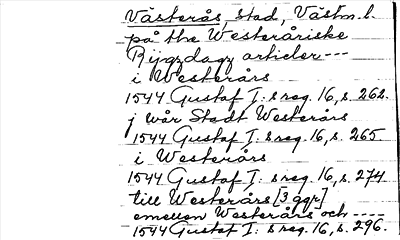 Västerås, stad, Västm. l.
på the Westeråriske
Rijgzdagz articler ---
i Westerårs
1544 Gustaf I: s reg. 16, s. 262.
j wår Stadt Westerårs
1544 Gustaf I: s reg. 16, s. 265
i Westerårs
1544 Gustaf I: s reg. 16, s. 274
till Westerårs [3 ggr]
emellon Westerårs och ----
1544 Gustaf I: s reg. 16, s. 296.